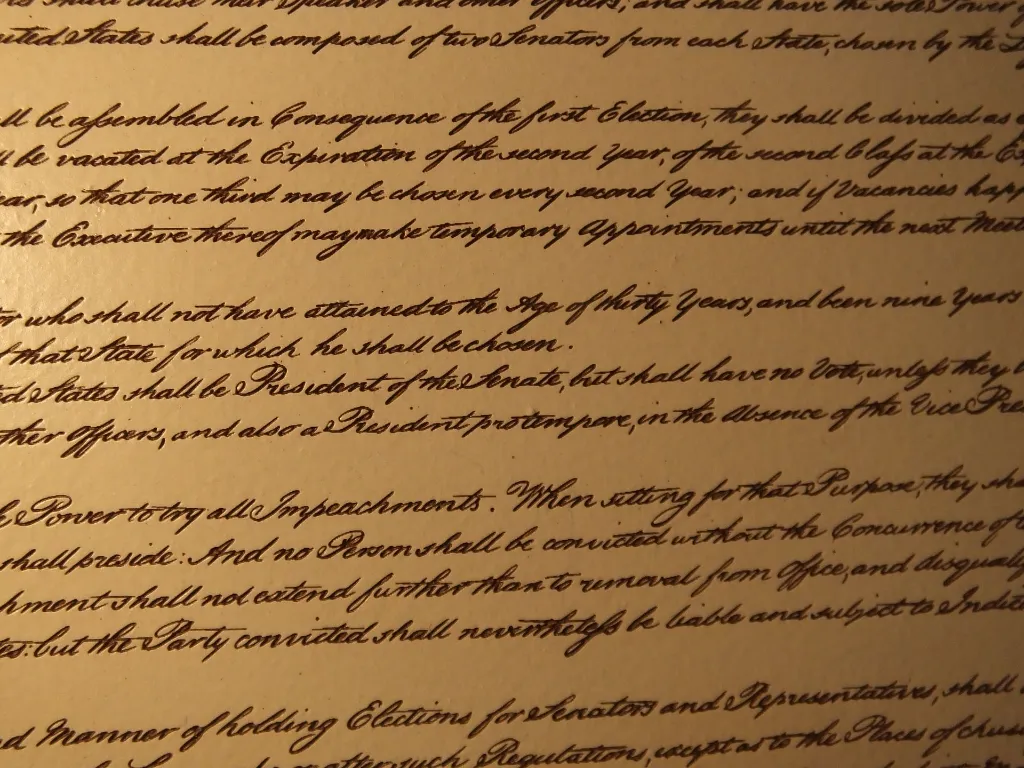 shall chuse their Speaker and other Officers; and shall have the sole Power
States shall be composed of two Senators from each State, chosen by the
be assembled in Consequence of the first Election, they shall be divided as
be vacated at the Expiration of the second Year, of the second Class at the
so that one third may be chosen every second Year; and if Vacancies
the Executive thereof may make temporary Appointments until the next
who shall not have attained to the Age of thirty Years, and been nine Years
that State for which he shall be chosen.
States shall be President of the Senate, but shall have no Vote, unless they
other Officers, and also a President pro tempore, in the Absence of the Vice
Power to try all Impeachments. When sitting for that Purpose, they
shall preside: And no Person shall be convicted without the Concurrence of
shall not extend further than to removal from Office, and
but the Party convicted shall nevertheless be liable and subject to
Manner of holding Elections for Senators and Representatives, shall
such Regulations, except as to the Places of